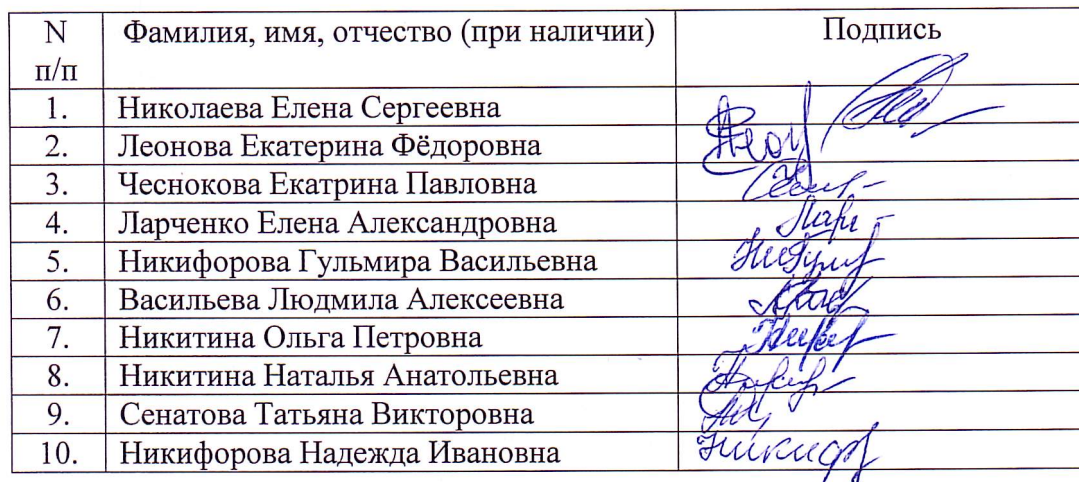 N п/п Фамилия, имя, отчество (при наличии) Подпись
1. Николаева Елена Сергеевна
2. Леонова Екатерина Фёдоровна
3. Чеснокова Екатрина Павловна
4. Ларченко Елена Александровна
5. Никифорова Гульмира Васильевна
6. Васильева Людмила Алексеевна
7. Никитина Ольга Петровна
8. Никитина Наталья Анатольевна
9. Сенатова Татьяна Викторовна
10. Никифорова Надежда Ивановна